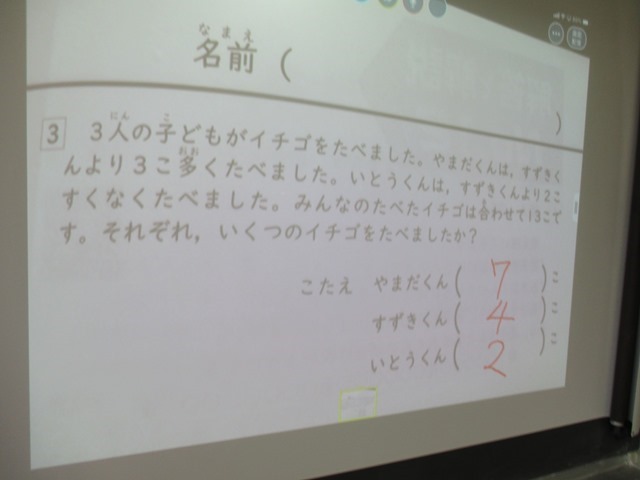 なまえ
名前 ( )
3 3人の子どもがイチゴをたべました。やまだくんは，すずきく
んより3こ多くたべました。いとうくんは，すずきくんより2こ
すくなくたべました。みんなのたべたイチゴは合わせて13こで
す。それぞれ，いくつのイチゴをたべましたか？
こたえ やまだくん( 7 )こ
すずきくん( 4 )こ
いとうくん( 2 )こ